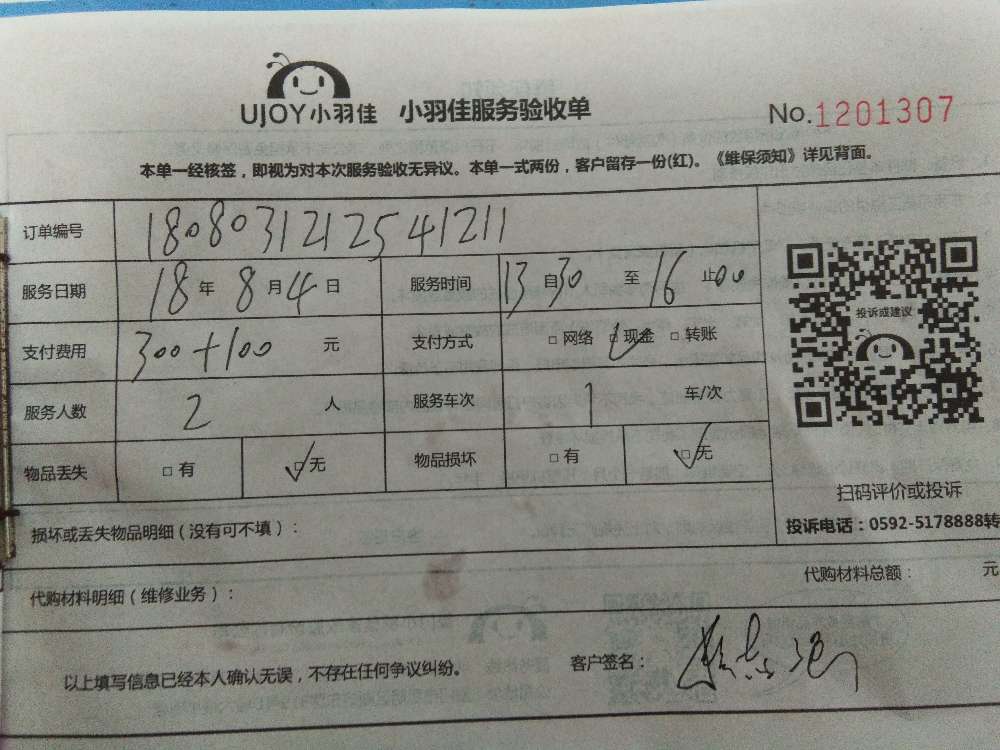 UJOY小羽佳 小羽佳服务验收单 No.1201307
本单一经核签，即视为对本次服务验收无异议。本单一式两份，客户留存一份(红)。《维保须知》详见背面。
订单编号 1808031212541211
服务日期 18年8月4日 服务时间 13自30至16止00
支付费用 300+100元 支付方式 □网络 ☑现金 □转账
服务人数 2人 服务车次 1车/次
物品丢失 □有 ☑无 物品损坏 □有 ☑无
投诉或建议
扫码评价或投诉
投诉电话：0592-5178888转
损坏或丢失物品明细（没有可不填）：
代购材料明细（维修业务）： 代购材料总额： 元
以上填写信息已经本人确认无误，不存在任何争议纠纷。 客户签名：